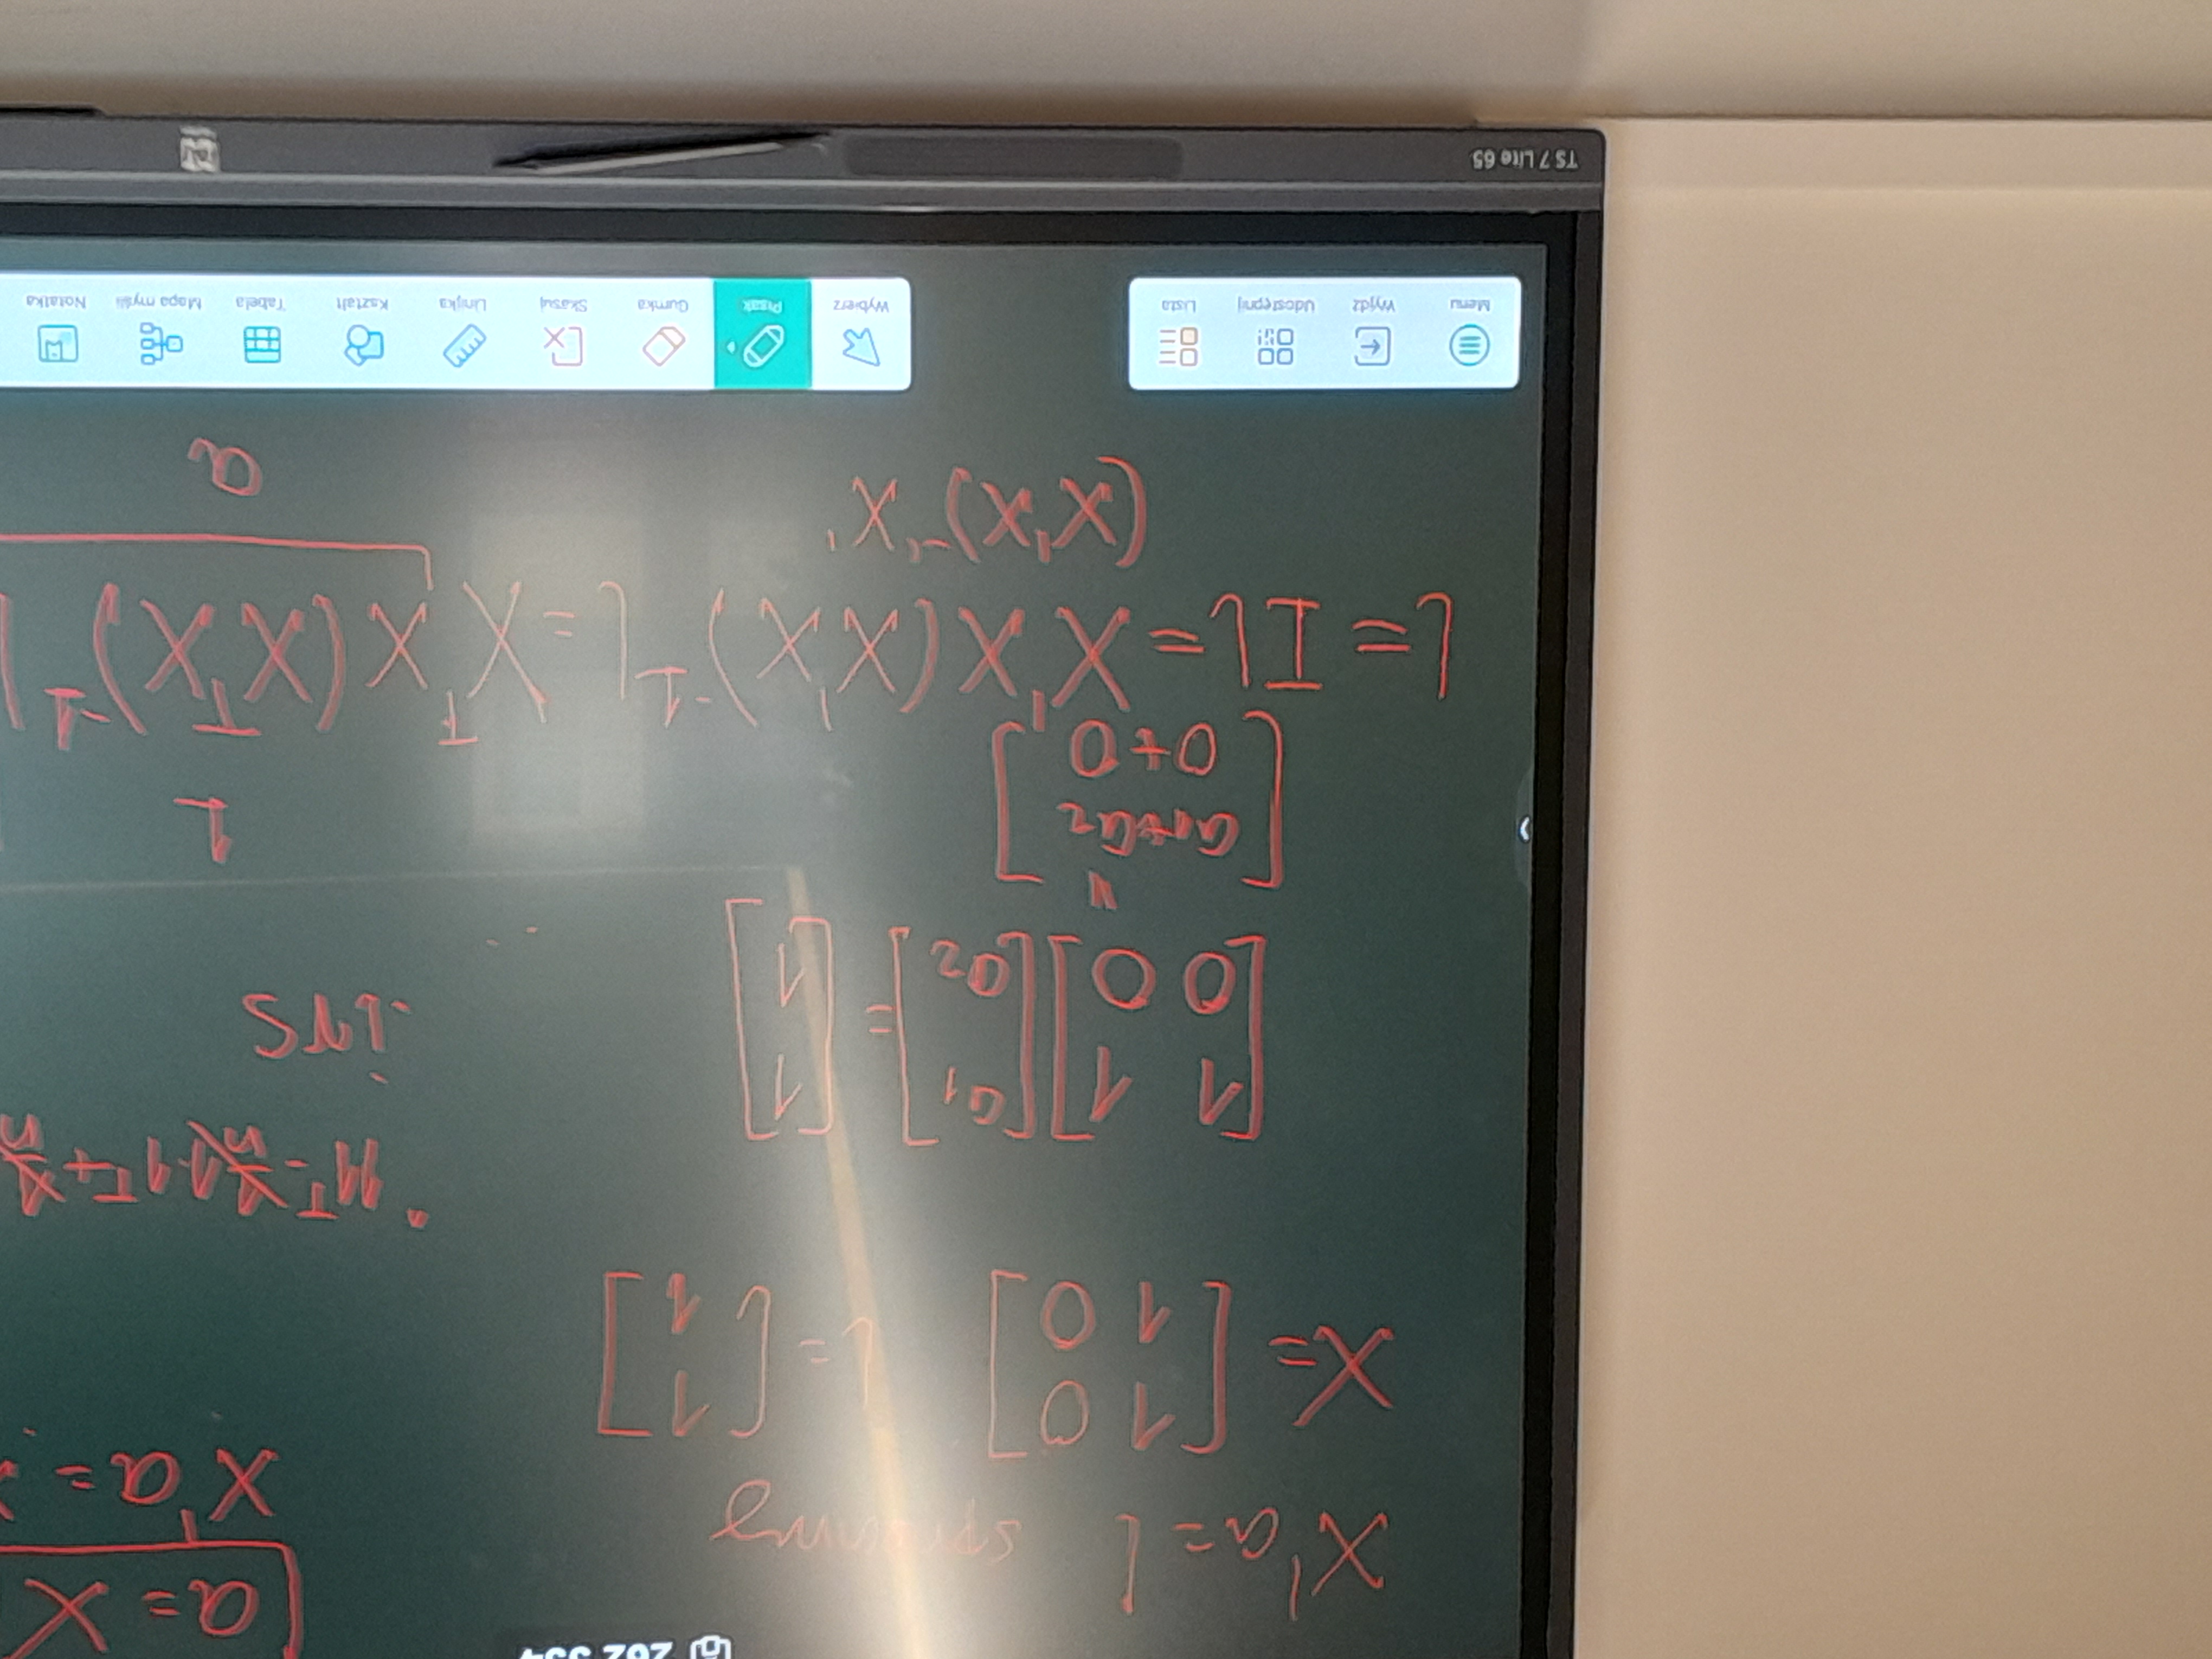 X'a = l
a = X
X'a =
X = [1 0; 1 0] l = [1; 1]
11ᵀ - 1/n 1·1ᵀ + 1/n
irs
[1 1; 0 0] [a₁; a₂] = [1; 1]
[a₁+a₂; 0+0]
1
l = I l = X'X(X'X)⁻¹ l = XᵀX(XᵀX)⁻¹
(X'X)⁻¹X'
a
Menu Wyjdź Udostępnij Lista
Wybierz Pisak Gumka Skasuj Linijka Kształt Tabela Mapa myśli Notatka
TS 7 Lite 65